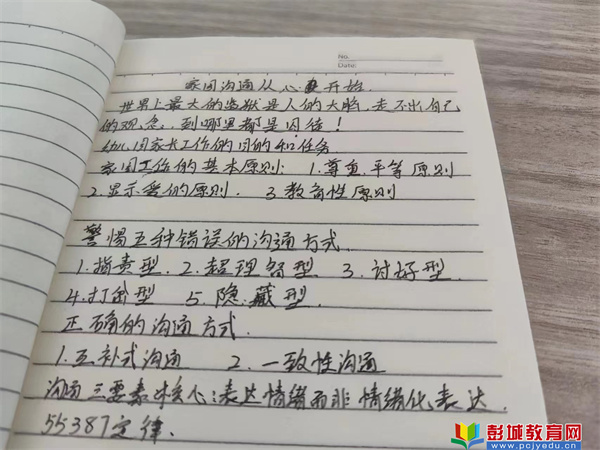 No.
Date:
家园沟通从心开始.
世界上最大的监狱是人的大脑,走不出自己
的观念,到哪里都是囚徒!
幼儿园家长工作的目的和任务
家园工作的基本原则: 1.尊重平等原则
2.显示爱的原则. 3.教育性原则
警惕五种错误的沟通方式.
1.指责型. 2.超理智型 3.讨好型.
4.打岔型 5.隐藏型.
正确的沟通方式.
1.互补式沟通 2.一致性沟通
沟通三要素核心:表达情绪而非情绪化表达.
55387定律.
彭城教育网
www.pcjyedu.cn